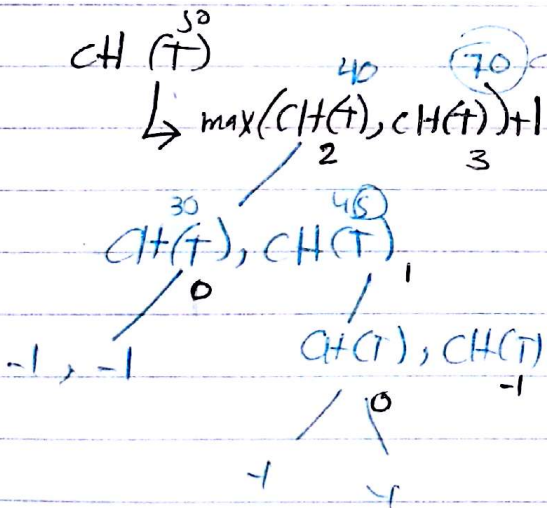 50
CH (T)
40 70
↳ max(CH(T), CH(T))+1
2 3
30 45
CH(T), CH(T)
0 1
-1, -1 CH(T), CH(T)
0 -1
-1 -1